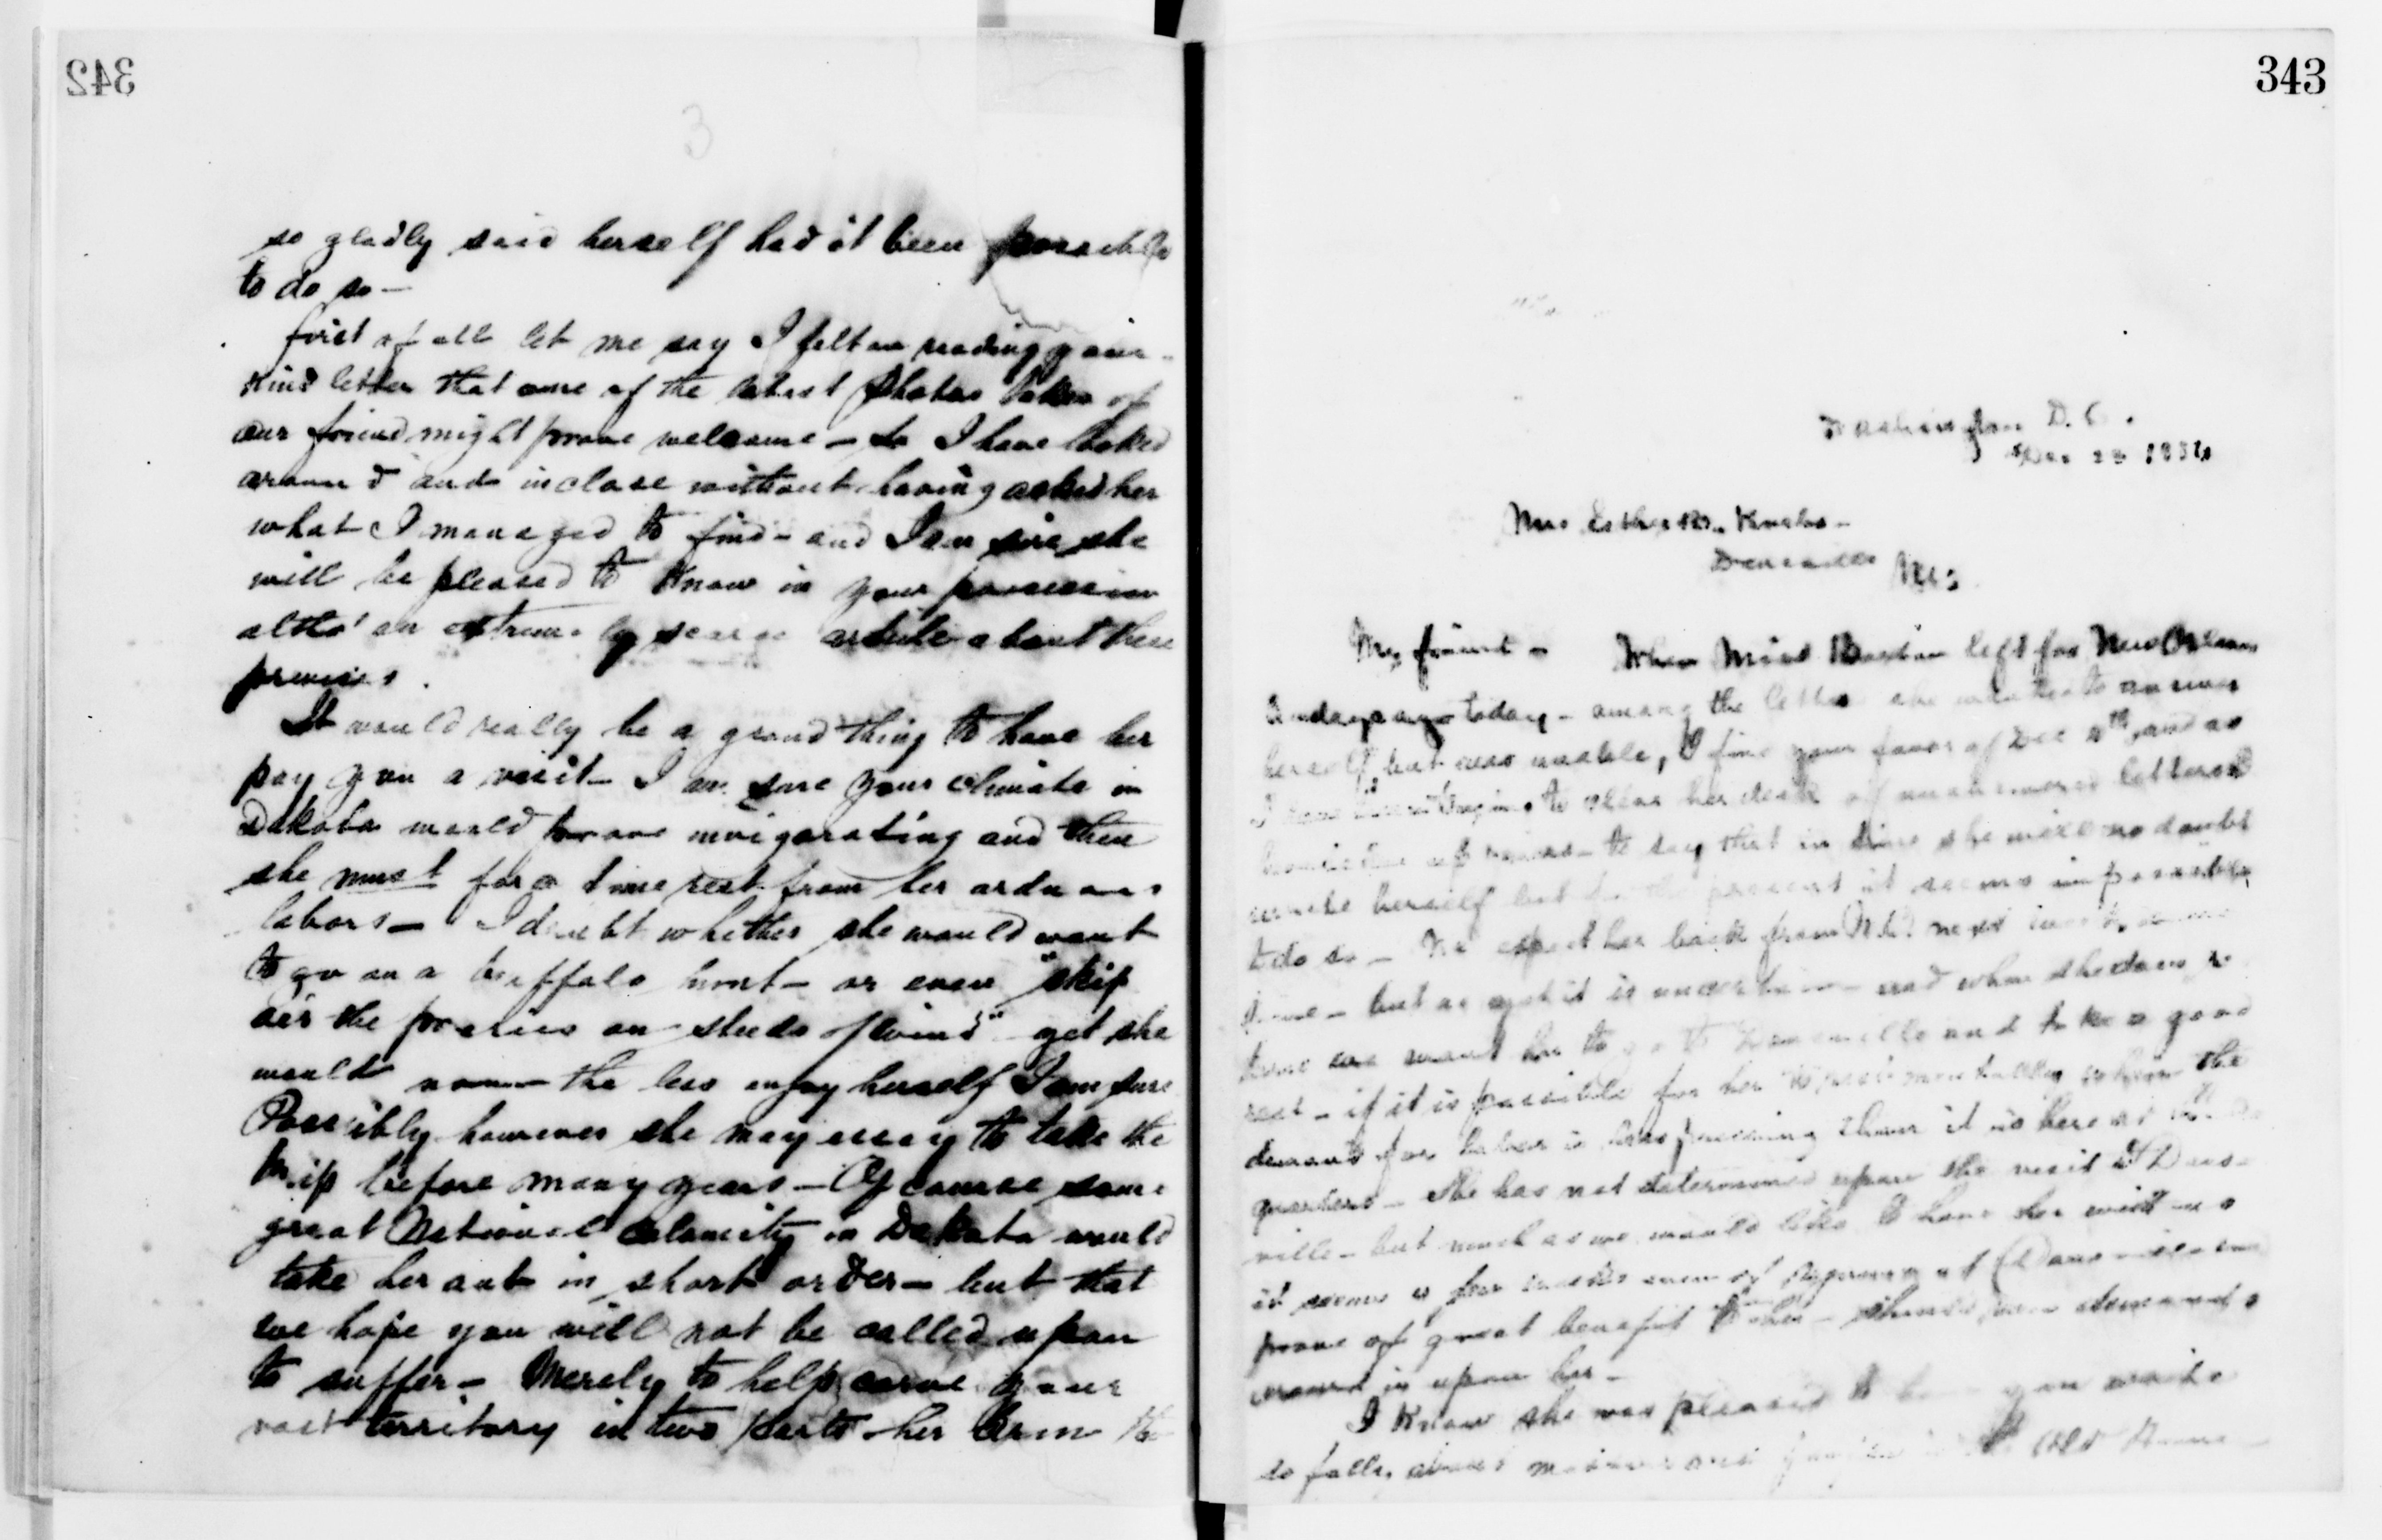 342
3
so gladly said herself had it been possible
to do so —
first of all let me say I felt on reading your
kind letter that one of the latest photos taken of
our friend might prove welcome — so I have looked
around and inclose without having asked her
what I managed to find — and I am sure she
will be pleased to know in your possession
altho' an extremely scarce article about these
premises.
It would really be a grand thing to have her
pay you a visit — I am sure your climate in
Dakota would prove invigorating and then
she must for a time rest from her arduous
labors — I doubt whether she would want
to go on a buffalo hunt — or even "skip
o'er the prairies on steeds of wind" yet she
would none the less enjoy herself I am sure
Possibly however she may essay to take the
trip before many years — Of course some
great National calamity in Dakota would
take her out in short order — but that
we hope you will not be called upon
to suffer — Merely to help carve your
vast territory in two parts her arm
343
Washington D.C.
Dec 23
Mrs Esther
My friend — When Miss Barton left for New Orleans
days ago today — among the letters she to answer
herself but was unable, I find your favor of Dec and as
I to clear her desk of unanswered letters
to say that in time she will no doubt
write herself but the present it seems impossible
to do so — We expect her back from N.O. next
but as yet it is uncertain — and when she does
we want her to go to Dansville and take a good
rest — if it is possible for her to rest mentally when the
demand for labor is less pressing than it is here at
quarters — She has not determined upon the visit to Dans-
ville — but much as we would like to have her with us
it seems a few weeks even of at Dansville
prove of great benefit to her — should demands
crowd in upon her —
I know she was pleased to you write
so fully about old Home